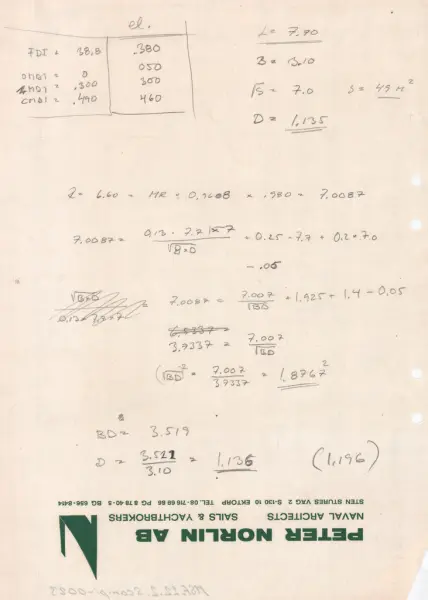 el.
FDI = 38,8 .380
OMDI = 0 050
.300 300
CMDI = .490 460
L = 7.70
B = 3.10
√S = 7.0 S = 49 m²
D = 1.135
R = 6.60 = MR = 0.9688 = .980 = 7.0087
7.0087 = 0.13 · 7.7 × 7 / √B×D = 0.25 · 7.7 + 0.2 × 7.0
- .05
√B×D = 7.0087 = 7.007 / √BD + 1.925 + 1.4 - 0.05
3.7337 = 7.007 / √BD
(√BD)² = 7.007 / 3.7337 = 1.8767²
BD = 3.519
D = 3.521 / 3.10 = 1.136 (1,196)
PETER NORLIN AB
NAVAL ARCITECTS SAILS & YACHTBROKERS
STEN STURES VÄG 2 S-130 10 EKTORP TEL. 08-716 68 66 PG 8 78 40-5 BG 656-8414